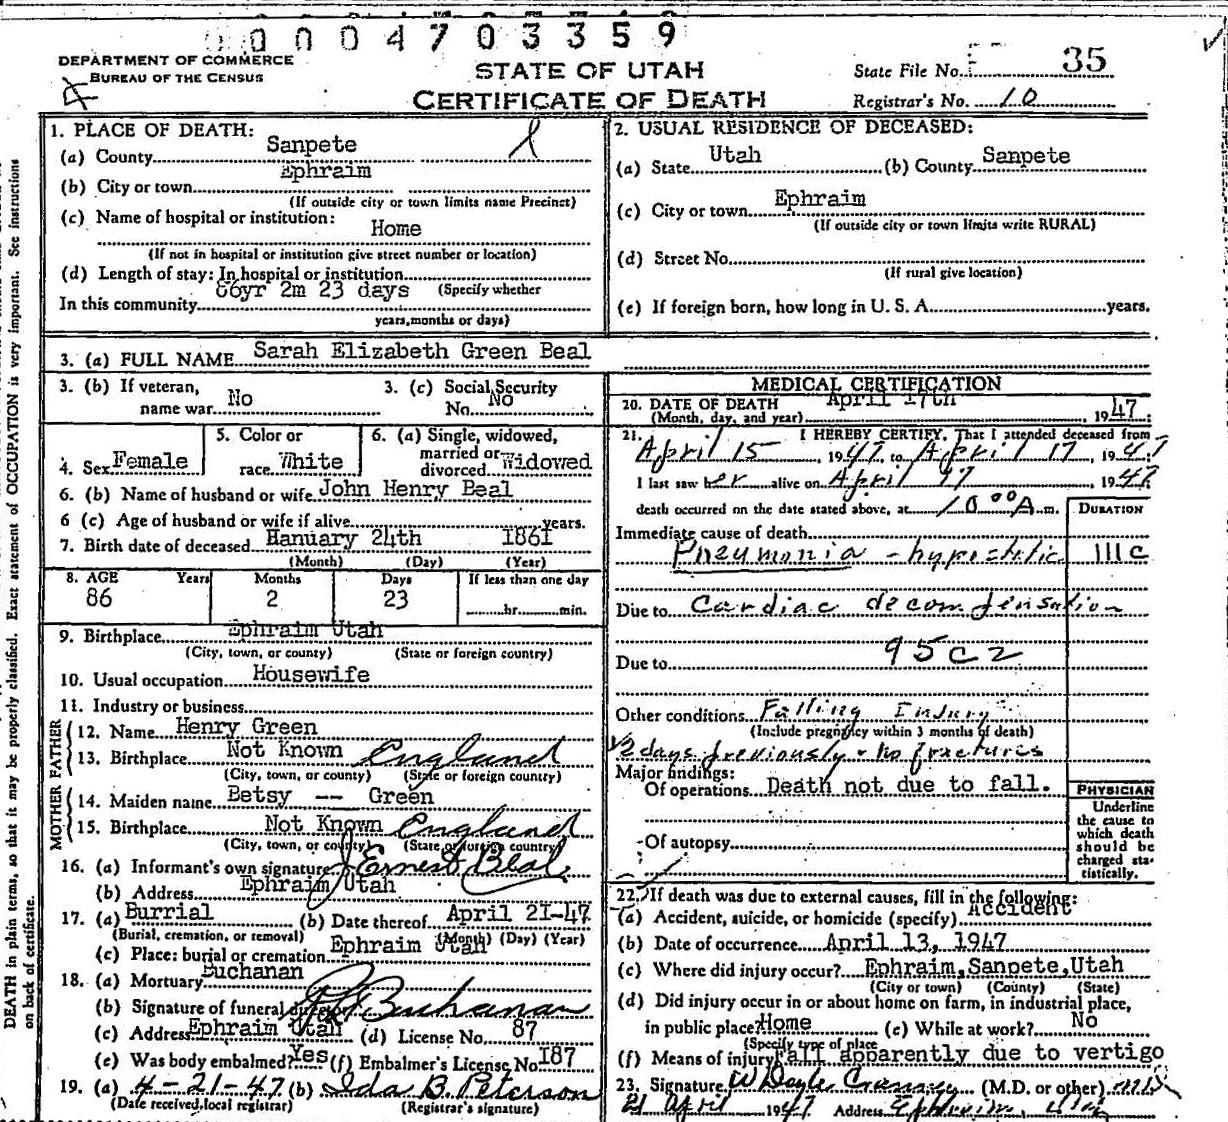 0004703359
DEPARTMENT OF COMMERCE
BUREAU OF THE CENSUS
STATE OF UTAH
CERTIFICATE OF DEATH
State File No. 35
Registrar's No. 10
1. PLACE OF DEATH:
(a) County Sanpete
(b) City or town Ephraim
(If outside city or town limits name Precinct)
(c) Name of hospital or institution:
Home
(If not in hospital or institution give street number or location)
(d) Length of stay: In hospital or institution
(Specify whether
In this community 86yr 2m 23 days
years, months or days)
2. USUAL RESIDENCE OF DECEASED:
(a) State Utah (b) County Sanpete
(c) City or town Ephraim
(If outside city or town limits write RURAL)
(d) Street No.
(If rural give location)
(e) If foreign born, how long in U. S. A. years.
3. (a) FULL NAME Sarah Elizabeth Green Beal
3. (b) If veteran, name war No
3. (c) Social Security No. No
4. Sex Female
5. Color or race White
6. (a) Single, widowed, married or divorced Widowed
6. (b) Name of husband or wife John Henry Beal
6 (c) Age of husband or wife if alive years.
7. Birth date of deceased Hanuary 24th I86I
(Month) (Day) (Year)
8. AGE Years Months Days If less than one day
86 2 23 hr. min.
9. Birthplace Ephraim Utah
(City, town, or county) (State or foreign country)
10. Usual occupation Housewife
11. Industry or business
FATHER
12. Name Henry Green
13. Birthplace Not Known England
(City, town, or county) (State or foreign country)
MOTHER
14. Maiden name Betsy -- Green
15. Birthplace Not Known England
(City, town, or county) (State or foreign country)
16. (a) Informant's own signature J Ernest Beal
(b) Address Ephraim Utah
17. (a) Burrial (b) Date thereof April 2I-47
(Burial, cremation, or removal) (Month) (Day) (Year)
(c) Place: burial or cremation Ephraim Utah
18. (a) Mortuary Buchanan
(b) Signature of funeral Buchanan
(c) Address Ephraim Utah (d) License No. 87
(e) Was body embalmed? Yes (f) Embalmer's License No. I87
19. (a) 4-21-47 (b) Ida B. Peterson
(Date received local registrar) (Registrar's signature)
MEDICAL CERTIFICATION
20. DATE OF DEATH April 17th
(Month, day, and year) , 1947
21. I HEREBY CERTIFY, That I attended deceased from
April 15, 1947, to April 17, 1947
I last saw her alive on April 1947
death occurred on the date stated above, at 10 00 A. m.
DURATION
Immediate cause of death
Pneumonia - hypostatic 111c
Due to Cardiac decompensation
Due to 95c2
Other conditions Falling Injury
(Include pregnancy within 3 months of death)
2 days previously - no fractures
Major findings:
Of operations Death not due to fall.
Of autopsy
PHYSICIAN
Underline
the cause to
which death
should be
charged sta-
tistically.
22. If death was due to external causes, fill in the following:
(a) Accident, suicide, or homicide (specify) Accident
(b) Date of occurrence April 13, 1947
(c) Where did injury occur? Ephraim, Sanpete, Utah
(City or town) (County) (State)
(d) Did injury occur in or about home on farm, in industrial place,
in public place? Home (e) While at work? No
(Specify type of place
(f) Means of injury Fall apparently due to vertigo
23. Signature W Doyle Cranney (M.D. or other) MD
21 April 1947 Address Ephraim, Utah
DEATH in plain terms, so that it may be properly classified. Exact statement of OCCUPATION is very important. See instructions
on back of certificate.